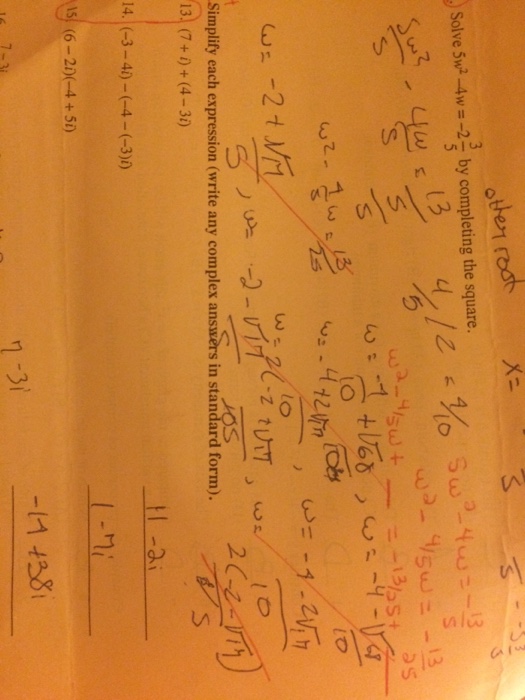 other root
x=
Solve 5w² - 4w = -2 3/5 by completing the square.
5w²/5 - 4w/5 = 13/5 /5
4/5 /2 = 4/10
5w² - 4w = -13/5
w² - 4/5w = -13/25
w² - 4/5 w = 13/25
w² - 4/5w + __ = -13/25 +
w = -4/10 + √68, w = -4 - √68/10
w = -4 + 2√17/10, w = -4 - 2√17/10
w = 2(-2 + √17)/10, w = 2(-2 - √17)/10
w = -2 + √17/5, w = -2 - √17/5
Simplify each expression (write any complex answers in standard form).
13. (7 + i) + (4 – 3i)
11 - 2i
14. (–3 – 4i) – (–4 – (–3)i)
1 - 7i
15. (6 – 2i)(–4 + 5i)
-14 + 38i
16 7 – 3i